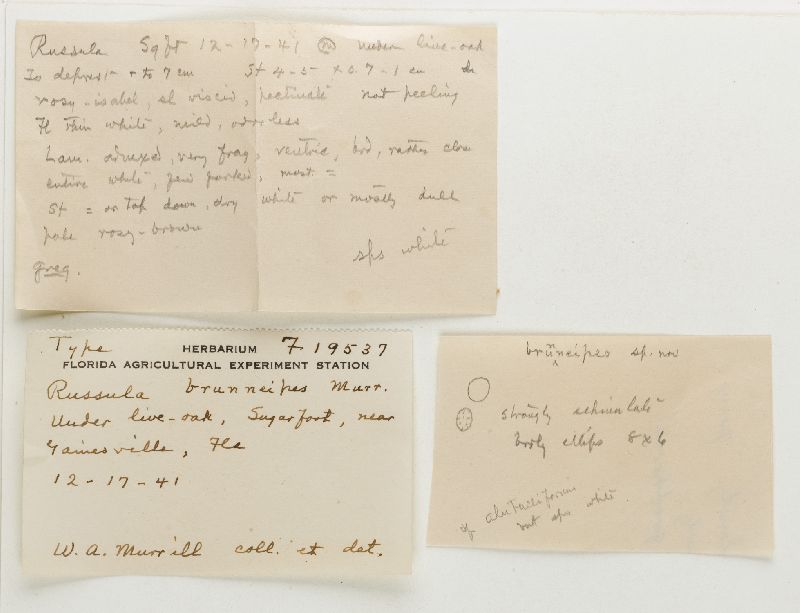 Russula Sqft 12-17-41 under live-oak
to 7 cm St 4-5 x 0.7-1 cm
rosy-isabel, sl viscid, pectinate not peeling
Fl thin white, mild, odorless
Lam. adnexed, very frag, ventric, brd, rather close
entire white, few forked, most =
St = or tap down, dry white or mostly dull
pale rosy-brown
sps white
greg.
Type HERBARIUM F 19537
FLORIDA AGRICULTURAL EXPERIMENT STATION
Russula brunneipes Murr.
Under live-oak, Sugarfoot, near
Gainesville, Fla
12-17-41
W. A. Murrill coll. et det.
brunneipes sp. nov
strongly echinulate
brdly ellips 8x6
alutaceiformis
but sps white.